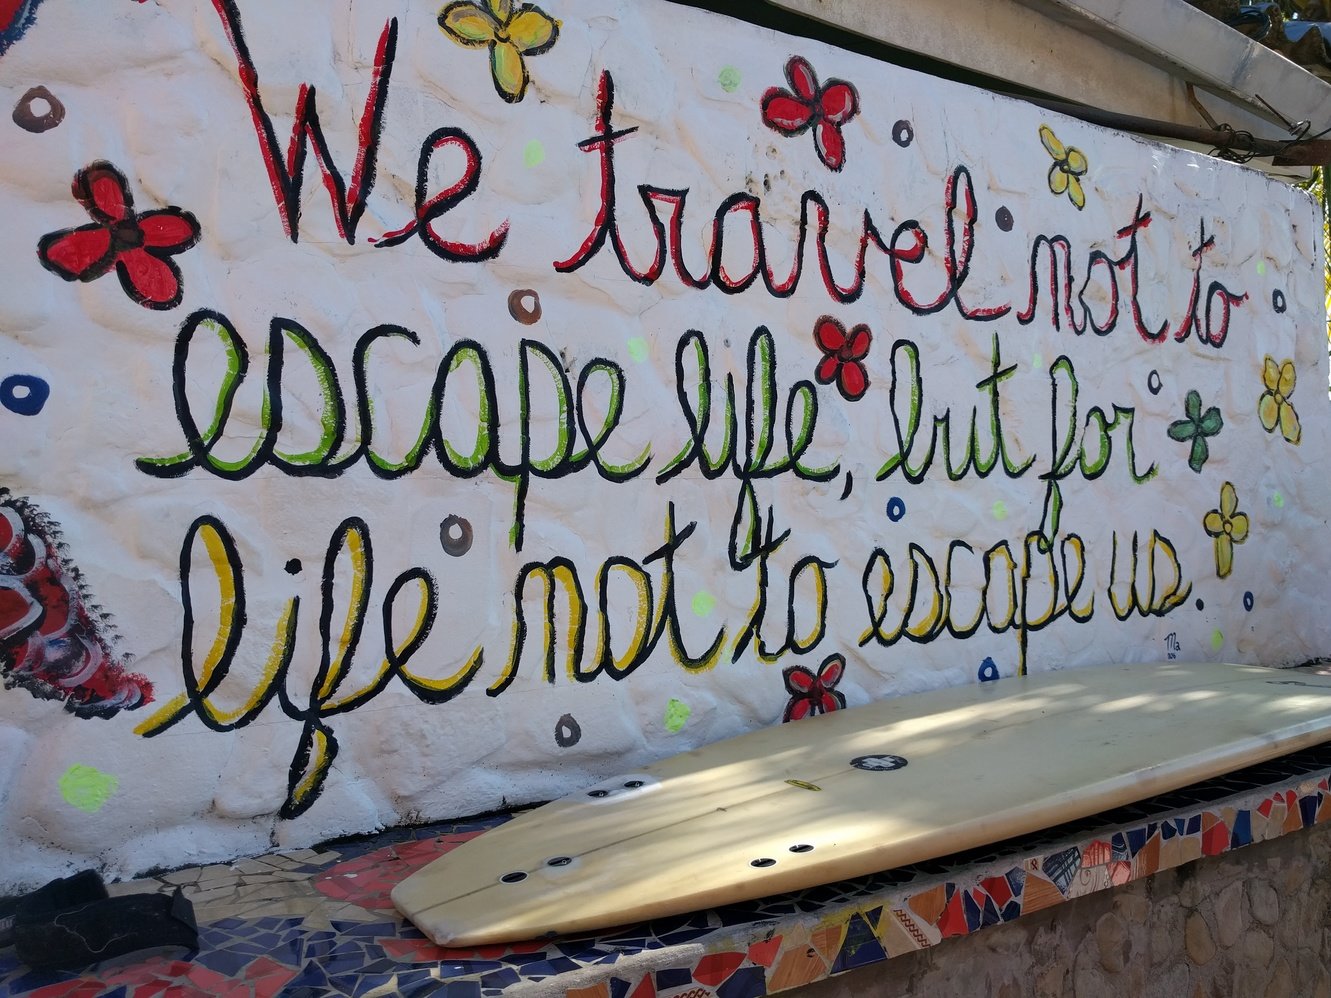 We travel not to
escape life, but for
life not to escape us.